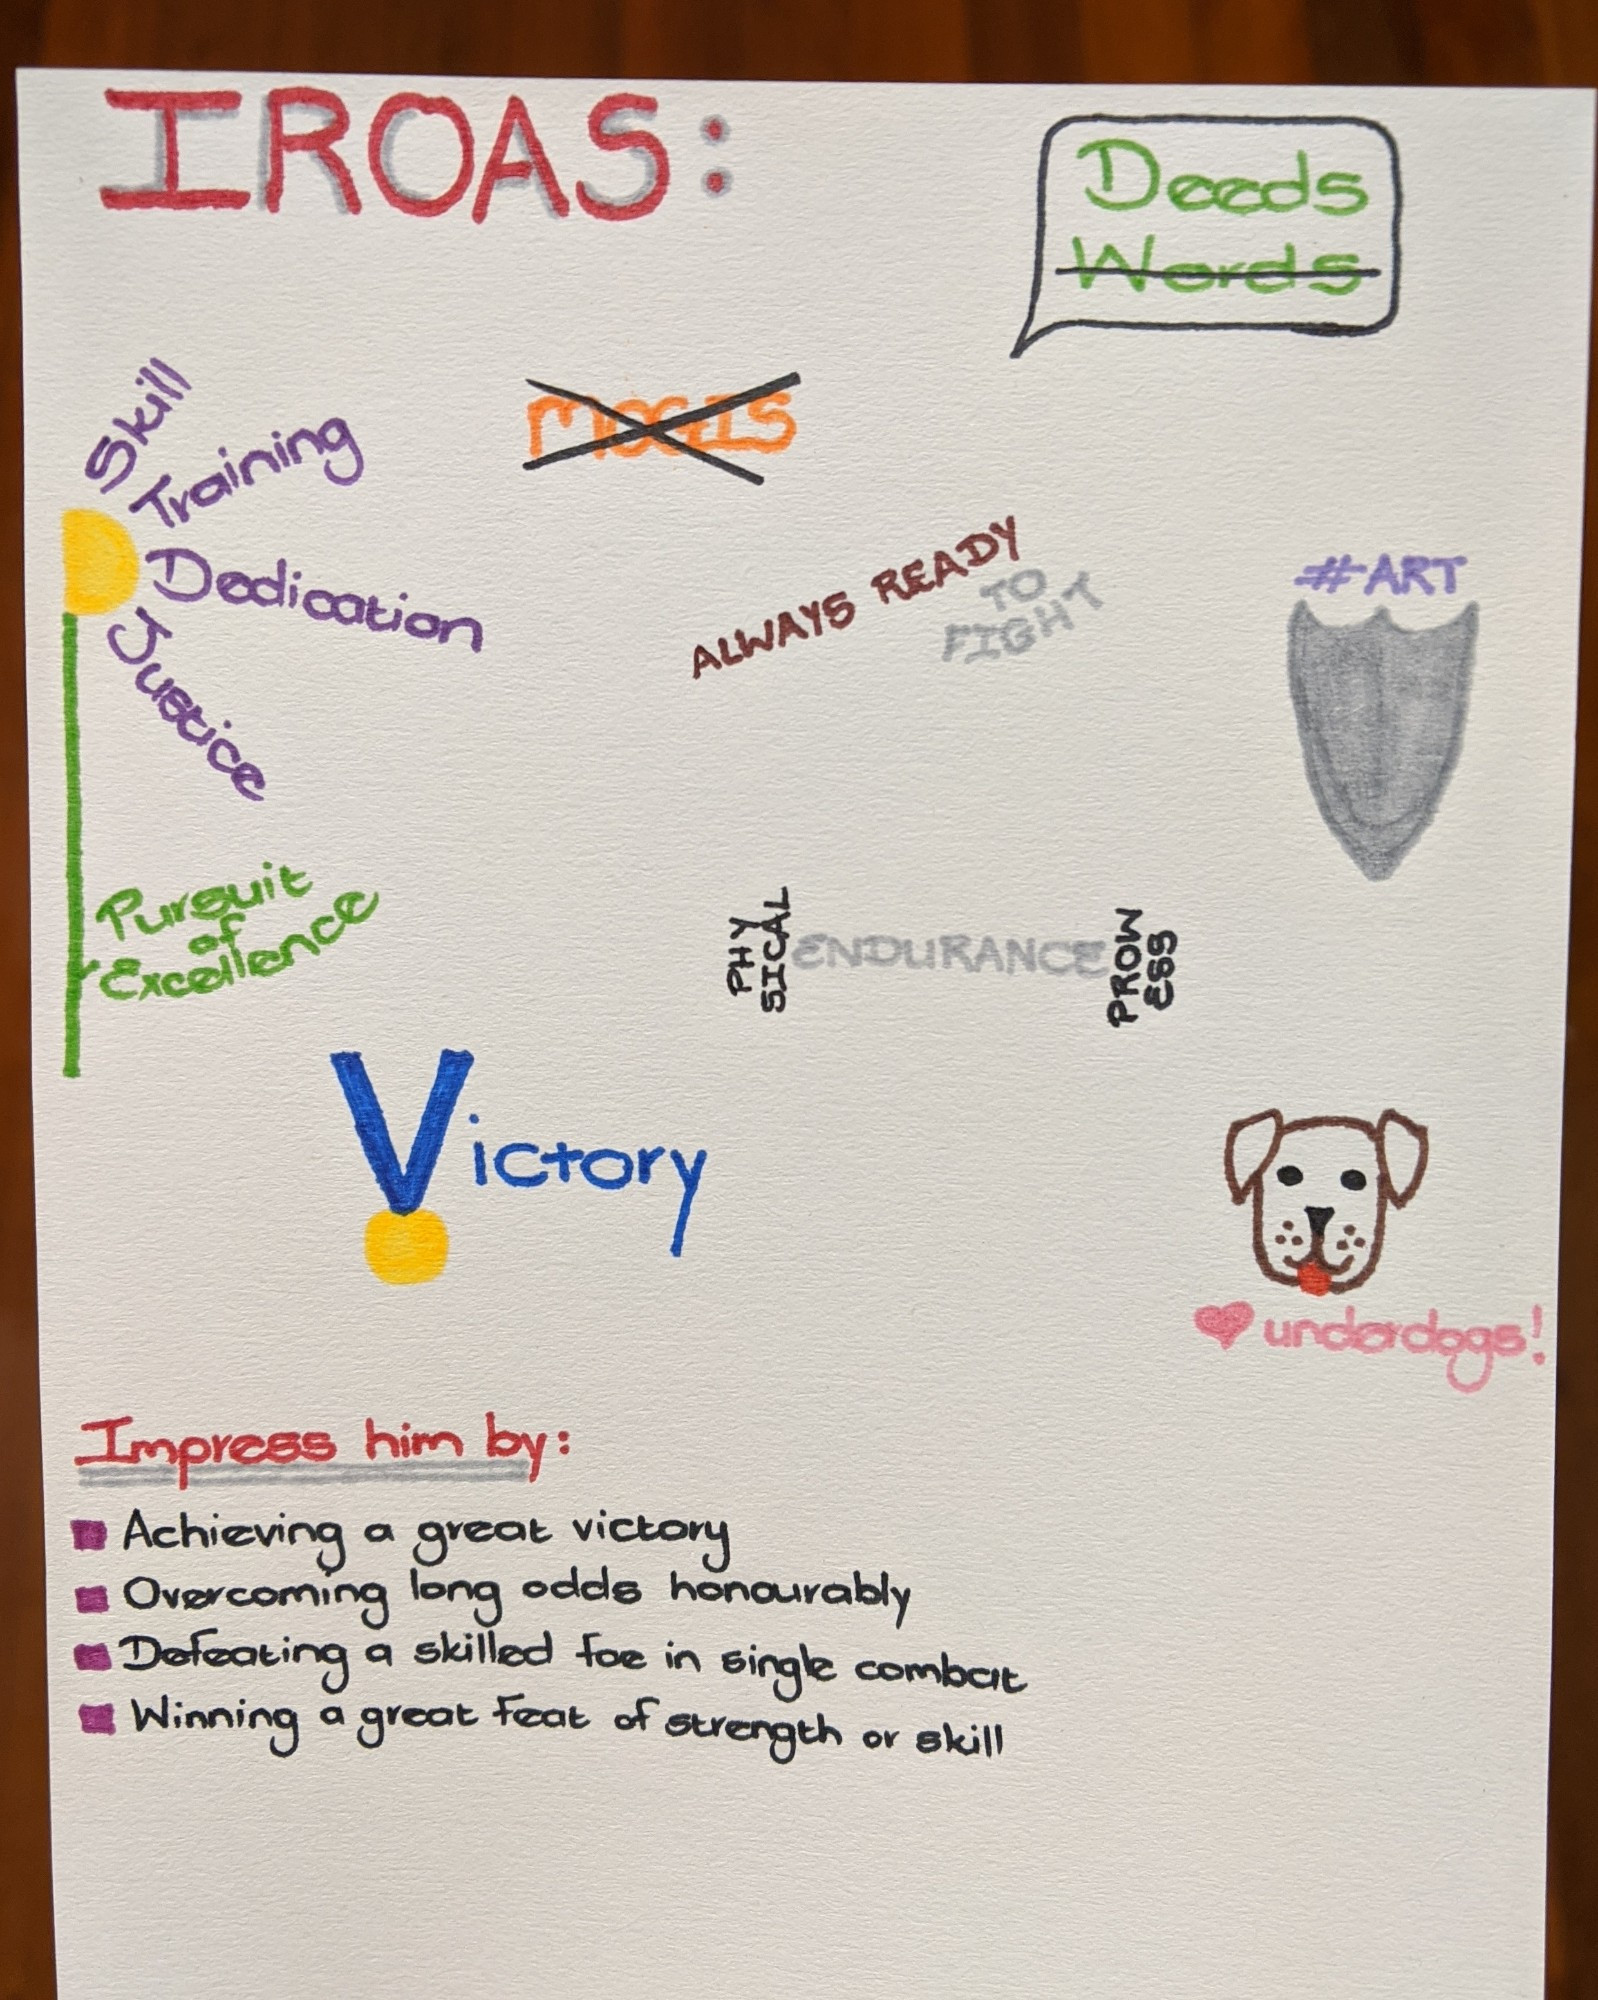 IROAS:
Deeds
Words
MOGIS
Skill
Training
Dedication
Justice
ALWAYS READY
TO
FIGHT
#ART
Pursuit
of
Excellence
PHY
SICAL
ENDURANCE
PROW
ESS
Victory
underdogs!
Impress him by:
Achieving a great victory
Overcoming long odds honourably
Defeating a skilled foe in single combat
Winning a great feat of strength or skill